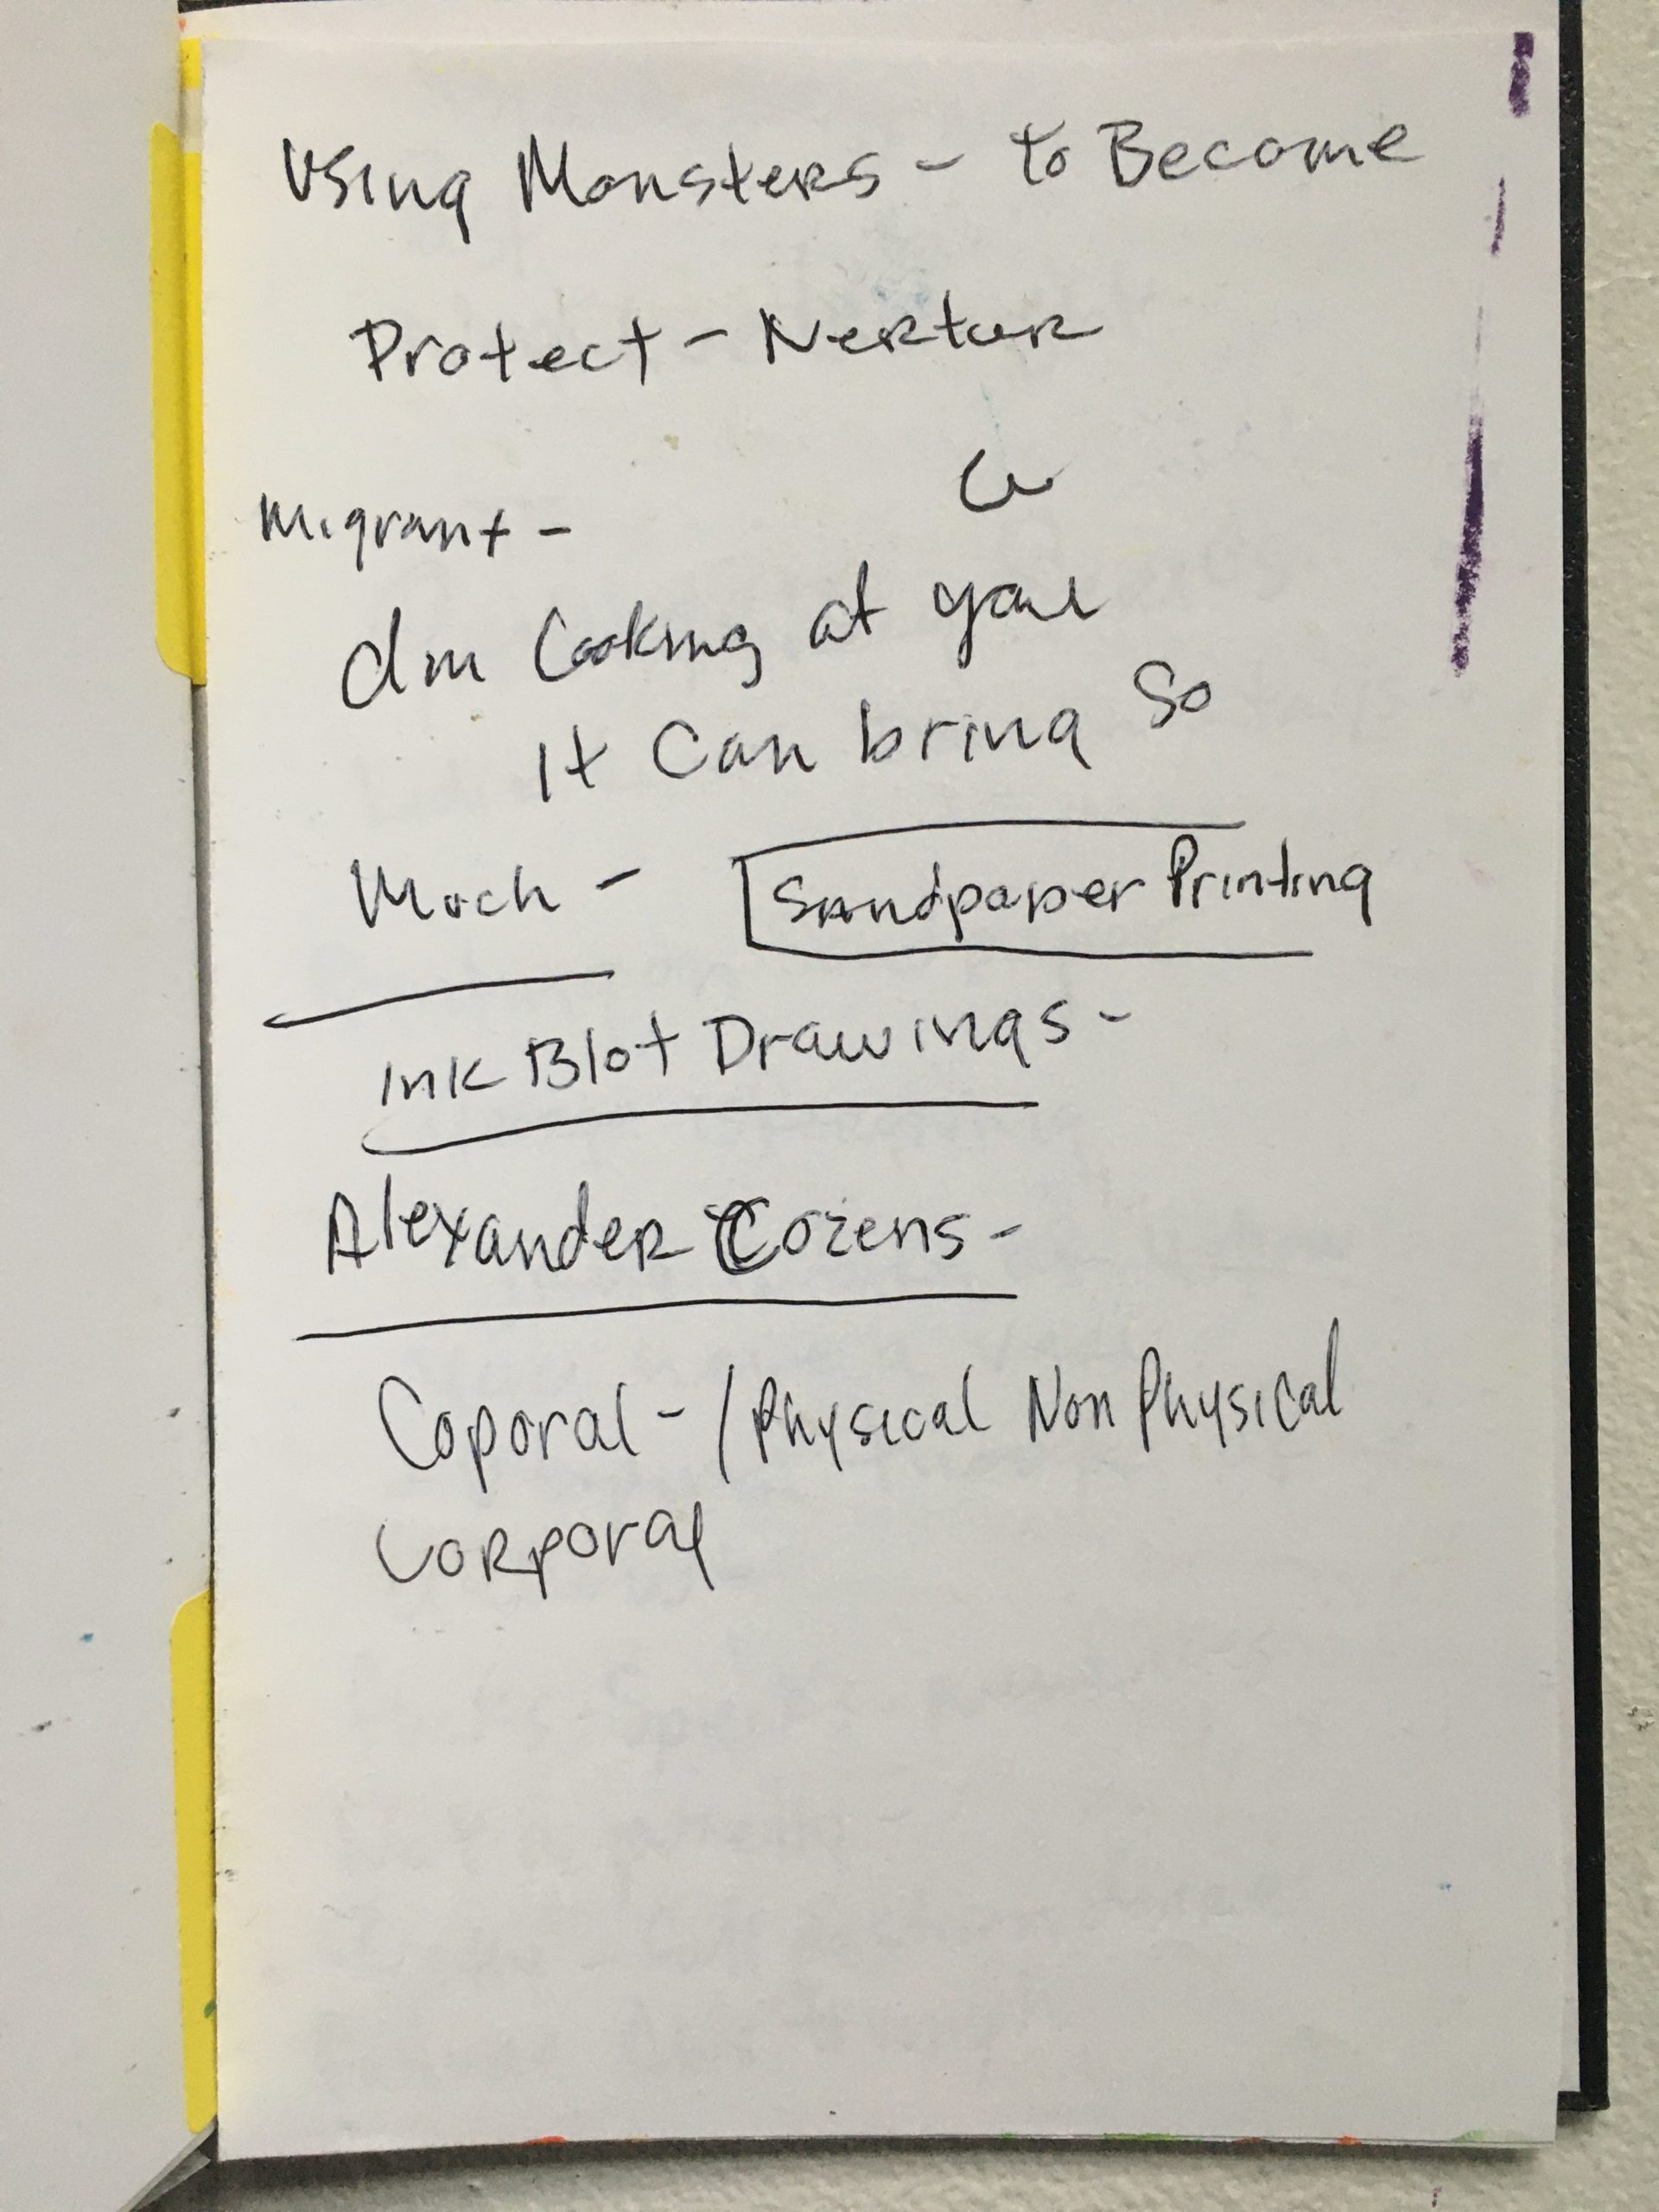 Using Monsters - to Become
Protect - Nertur
Migrant -
Im Looking at you
It Can bring So
Much - Sandpaper Printing
Ink Blot Drawings -
Alexander Cozens -
Coporal - / Physical Non Physical
Corporal